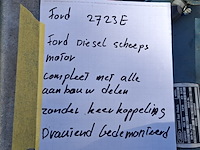 Ford 2723E
Ford Diesel scheeps
motor
compleet met alle
aanbouw delen
zonder keerkoppeling
Draaiend gedemonteerd